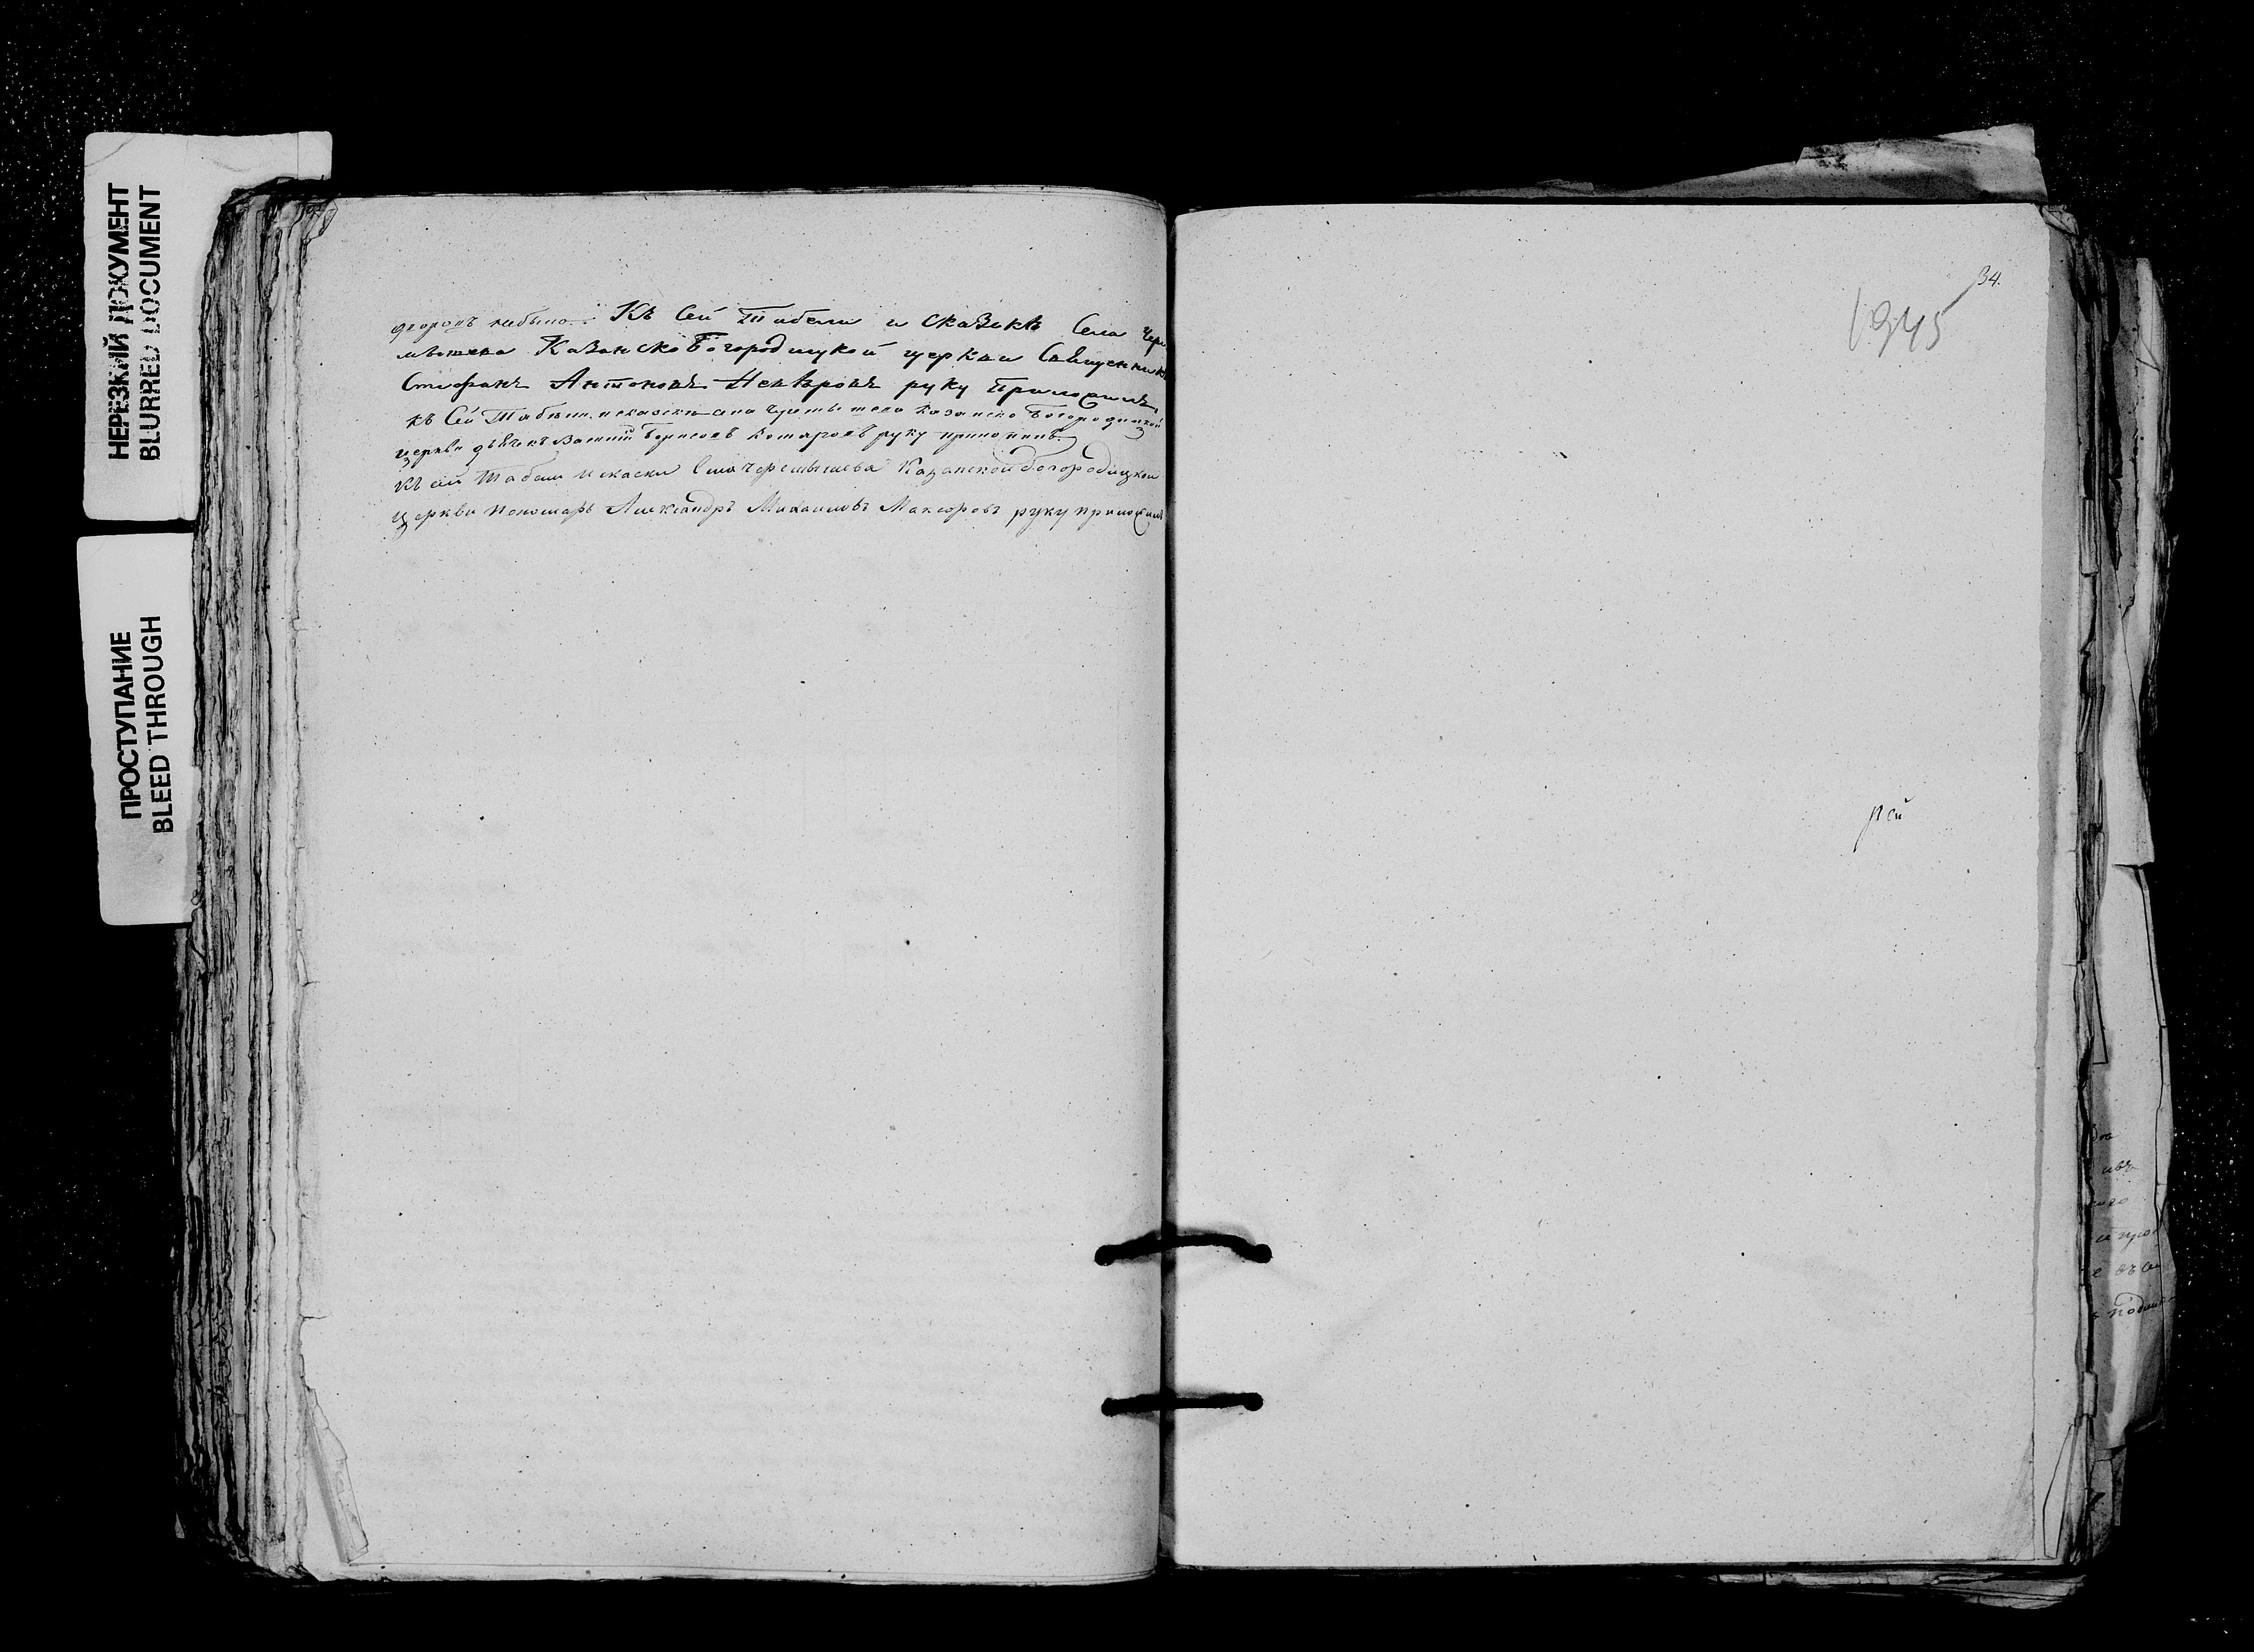 НЕРЕЗКИЙ ДОКУМЕНТ
BLURRED DOCUMENT
ПРОСТУПАНИЕ
BLEED THROUGH
небыло. Къ Сей Табели и сказкѣ Села Чере
мышева КазанскоБогородицкой церкви Священникъ
Стефанъ Антоновъ руку приложилъ.
къ Сей Табели исказки села Черемышева казанско Богородицкой
церкви дьячекъ Василий Борисовъ руку приложилъ
къ сей Табели исказки Села Черемышева Казанской богородицкой
церкви Пономарь Александръ Михаиловъ руку приложилъ
34.
1945
рей